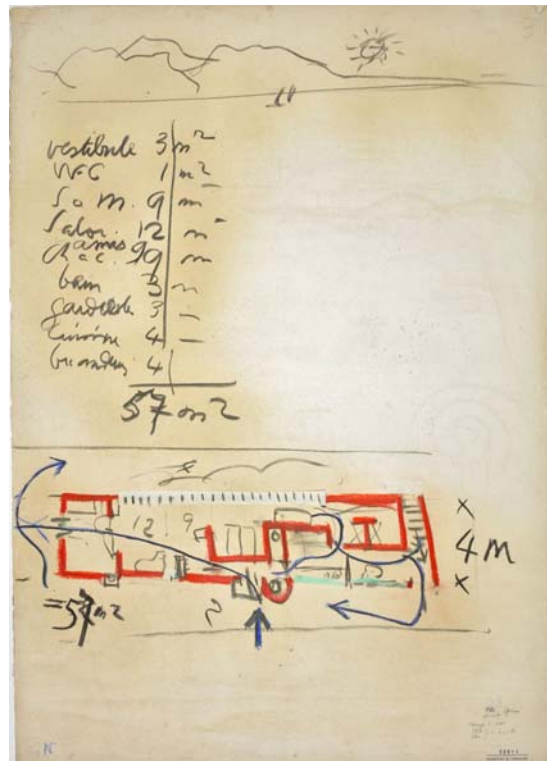 vestibule 3 m²
W C 1 m²
S. a M. 9 m
Salon. 12 m
ch a c. 9 m
bain 3 m
garderobe 3 –
cuisine 4 –
buanderie 4
57 m²
x
12 9
4 M
x
= 57 m²